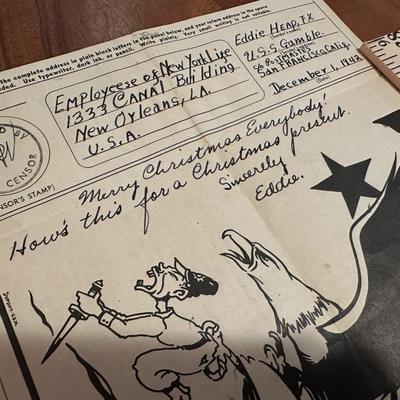 the complete address in plain block letters in the panel below, and your return address in the space
ded. Use typewriter, dark ink, or pencil. Write plainly. Very small writing is not suitable.
D BY
CENSOR
NSOR'S STAMP)
Employees of New York Life
1333 CANAL Building
New Orleans, LA.
U.S.A.
Eddie HEAD, FX
(Sender's name)
U.S.S. Gamble.
San Francisco, Calif.
December 1, 1942
(Date)
Merry Christmas Everybody!
How's this for a Christmas present.
Sincerely
Eddie.